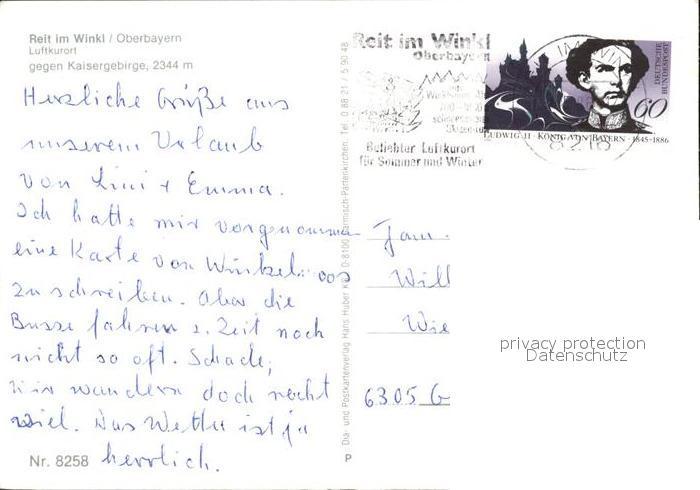 Reit im Winkl / Oberbayern
Luftkurort
gegen Kaisergebirge, 2344 m
Herzliche Grüße aus
unserem Urlaub
von Lini + Emma.
Ich hatte mir vorgenommen
eine Karte von Winkelmoos
zu schreiben. Aber die
Busse fahren z. Zeit noch
nicht so oft. Schade,
wir wandern doch recht
viel. Das Wetter ist ja
herrlich.
Nr. 8258
Dia- und Postkartenverlag Hans Huber KG, D-8100 Garmisch-Partenkirchen, Tel. 0 88 21 / 5 90 48
P
Reit im Winkl
Oberbayern
Beliebter Luftkurort
für Sommer und Winter
DEUTSCHE
BUNDESPOST
60
LUDWIG II · KÖNIG VON BAYERN · 1845-1886
Fam.
Will
Wie
6305 G
privacy protection
Datenschutz